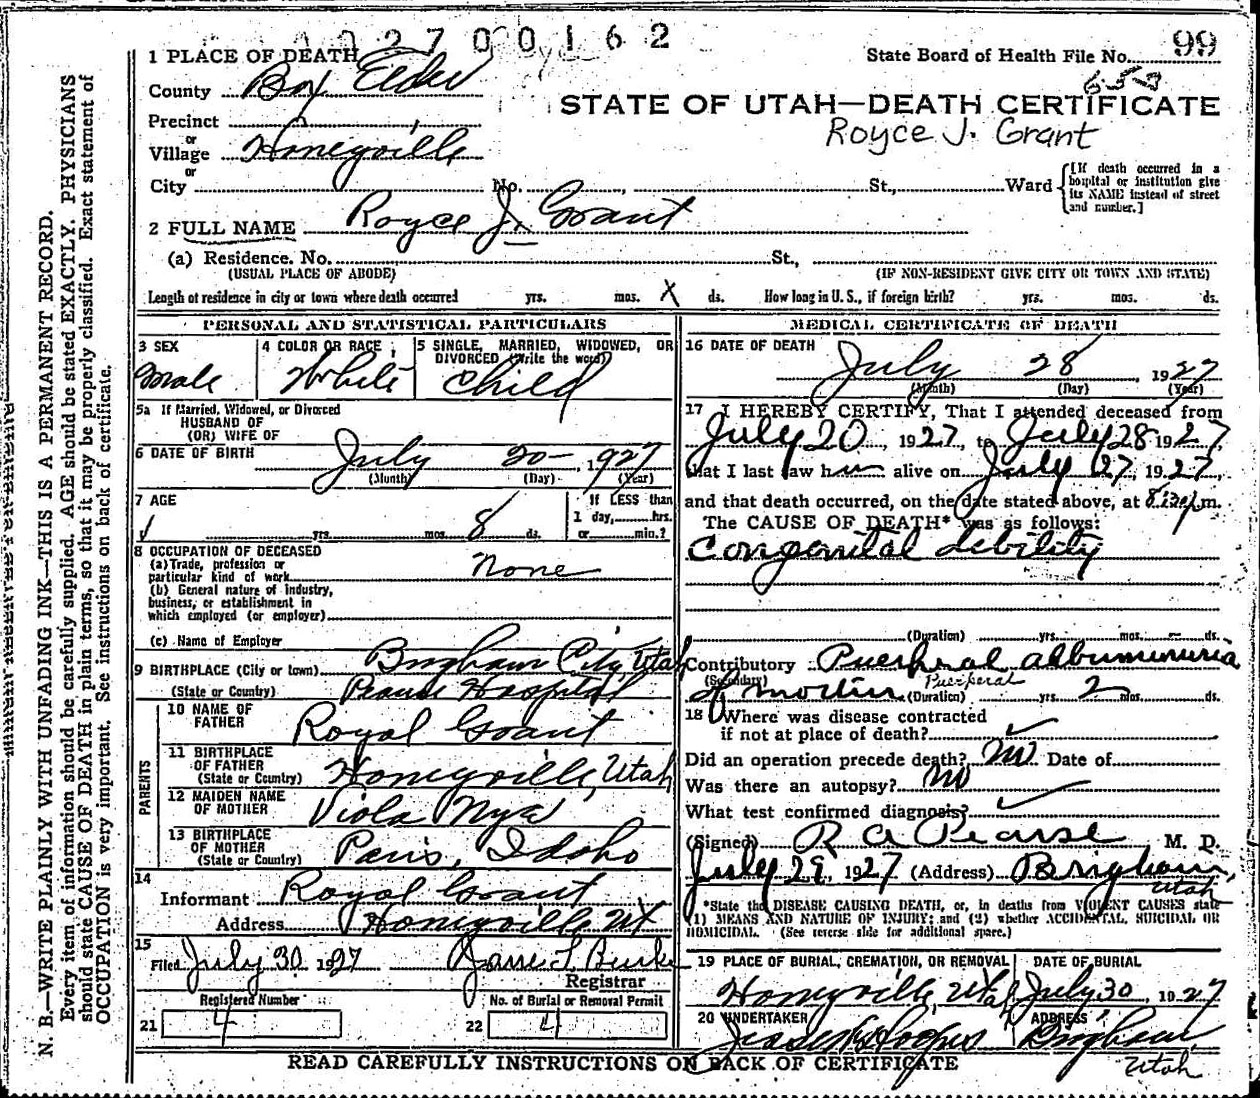 2 7 0 0 1 6 2
1 PLACE OF DEATH
State Board of Health File No. 99
County Box Elder
6-5-3
STATE OF UTAH—DEATH CERTIFICATE
Precinct
Royce J. Grant
or
Village Honeyville
or
City No. , St., Ward
[If death occurred in a hospital or institution give its NAME instead of street and number.]
2 FULL NAME Royce J. Grant
(a) Residence. No. St.,
(USUAL PLACE OF ABODE) (IF NON-RESIDENT GIVE CITY OR TOWN AND STATE)
Length of residence in city or town where death occurred yrs. mos. X ds. How long in U.S., if foreign birth? yrs. mos. ds.
PERSONAL AND STATISTICAL PARTICULARS
3 SEX Male
4 COLOR OR RACE White
5 SINGLE, MARRIED, WIDOWED, OR
DIVORCED (Write the word)
Child
5a If Married, Widowed, or Divorced
HUSBAND OF
(OR) WIFE OF
6 DATE OF BIRTH July 20 — , 1927
(Month) (Day) (Year)
7 AGE
yrs. mos. 8 ds.
If LESS than
1 day, hrs.
or min.?
8 OCCUPATION OF DECEASED
(a) Trade, profession or
particular kind of work None
(b) General nature of industry,
business, or establishment in
which employed (or employer)
(c) Name of Employer
9 BIRTHPLACE (City or town) Brigham City, Utah
(State or Country) Pearse Hospital
PARENTS
10 NAME OF
FATHER Royal Grant
11 BIRTHPLACE
OF FATHER
(State or Country) Honeyville, Utah
12 MAIDEN NAME
OF MOTHER Viola Nye
13 BIRTHPLACE
OF MOTHER
(State or Country) Paris, Idaho
14
Informant Royal Grant
Address Honeyville Ut
15
Filed July 30 1927
Registrar
Registered Number
21 4
No. of Burial or Removal Permit
22 4
MEDICAL CERTIFICATE OF DEATH
16 DATE OF DEATH
July 28 , 1927
(Month) (Day) (Year)
17 I HEREBY CERTIFY, That I attended deceased from
July 20 , 1927, to July 28 1927,
that I last saw him alive on July 27, 1927,
and that death occurred, on the date stated above, at 8:30 p.m.
The CAUSE OF DEATH* was as follows:
Congenital debility
(Duration) yrs. mos. ds.
Contributory Puerperal albumunuria
(Secondary) Puerperal
of mother (Duration) yrs. 2 mos. ds.
18 Where was disease contracted
if not at place of death?
Did an operation precede death? no Date of
Was there an autopsy? no
What test confirmed diagnosis?
(Signed) R A Pearse M. D.
July 29, 1927 (Address) Brigham,
Utah
*State the DISEASE CAUSING DEATH, or, in deaths from VIOLENT CAUSES state
(1) MEANS AND NATURE OF INJURY; and (2) whether ACCIDENTAL, SUICIDAL OR
HOMICIDAL. (See reverse side for additional space.)
19 PLACE OF BURIAL, CREMATION, OR REMOVAL
Honeyville, Utah
DATE OF BURIAL
July 30 , 1927
20 UNDERTAKER
ADDRESS
Brigham,
Utah
READ CAREFULLY INSTRUCTIONS ON BACK OF CERTIFICATE
N. B.—WRITE PLAINLY WITH UNFADING INK—THIS IS A PERMANENT RECORD.
Every item of information should be carefully supplied. AGE should be stated EXACTLY. PHYSICIANS
should state CAUSE OF DEATH in plain terms, so that it may be properly classified. Exact statement of
OCCUPATION is very important. See instructions on back of certificate.